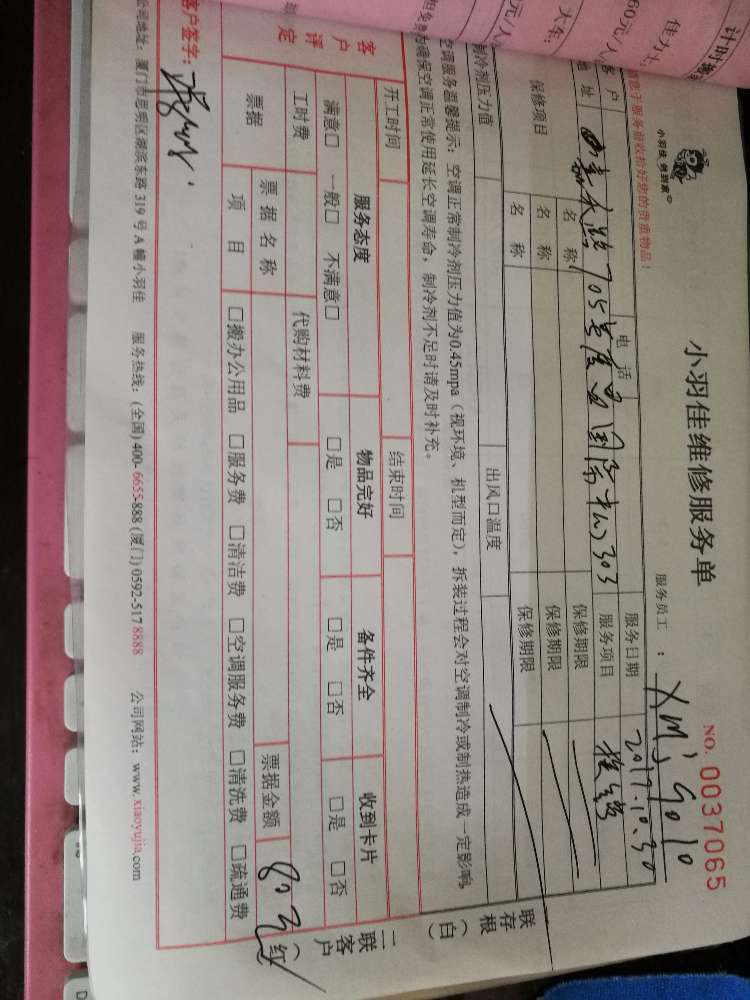 计时
60元/人
佳力士:
元/人
大车:
小羽佳 想到家
小羽佳维修服务单
NO. 0037065
服务员工 : XMJ9010
您于服务前收拾好您的贵重物品!
客户
电话
服务日期 2017.10.30
地址 嘉禾路705号 303
服务项目
保修项目
名称
保修期限
名称
保修期限
名称
保修期限
制冷剂压力值
出风口温度
存根联(白)
空调服务温馨提示: 空调正常制冷剂压力值为0.45mpa (视环境、机型而定), 拆装过程会对空调制冷或制热造成一定影响,
确保空调正常使用延长空调寿命, 制冷剂不足时请及时补充。
开工时间
结束时间
客户评定
服务态度
物品完好
备件齐全
收到卡片
满意□ 一般□ 不满意□
□是 □否
□是 □否
□是 □否
工时费
代购材料费
票据
票据名称
票据金额 80元
项目
□搬办公用品 □服务费 □清洁费 □空调服务费 □清洗费 □疏通费
二联客户(红)
客户签字:
公司地址: 厦门市思明区湖滨东路 319 号 A 幢小羽佳 服务热线: (全国) 400-6655-888 (厦门) 0592-517 8888 公司网站: www.xiaoyujia.com